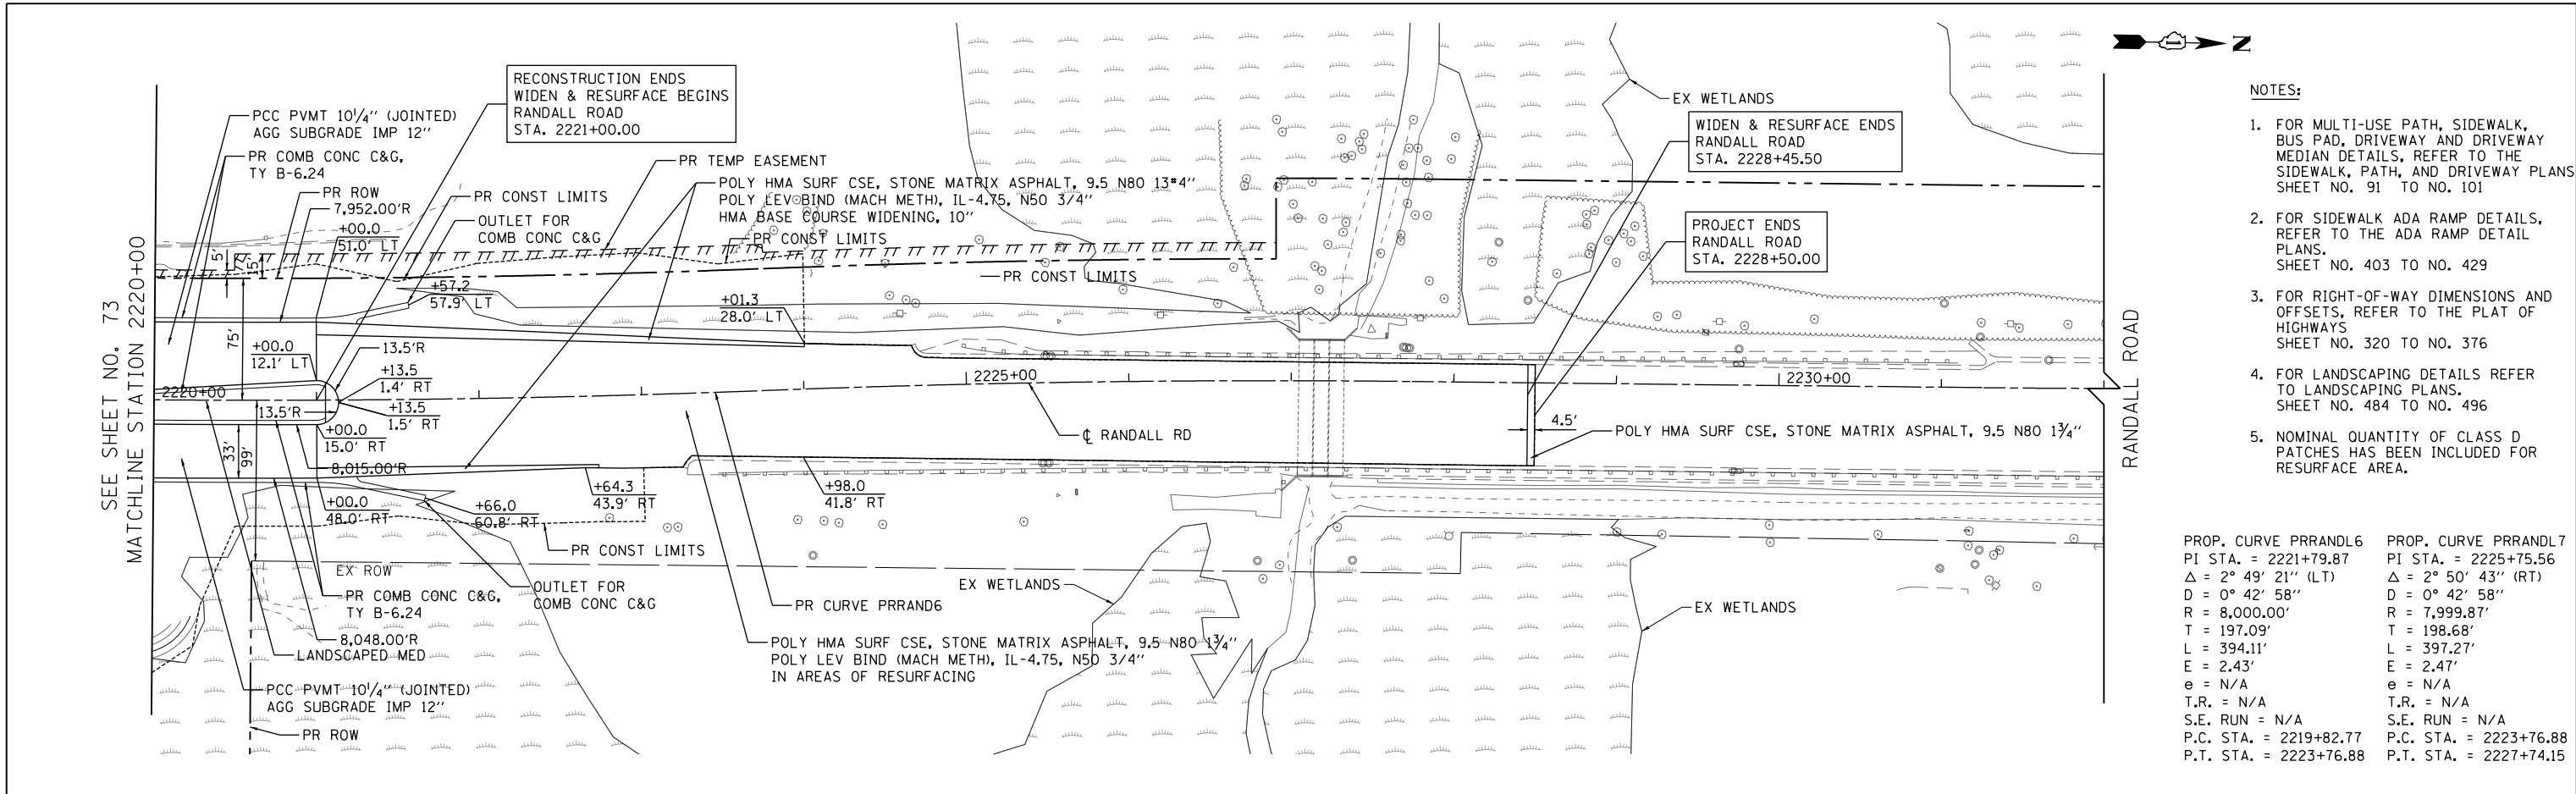 SEE SHEET NO. 73
MATCHLINE STATION 2220+00
PCC PVMT 10¼'' (JOINTED)
AGG SUBGRADE IMP 12''
PR COMB CONC C&G,
TY B-6.24
PR ROW
7,952.00'R
+00.0
51.0' LT
RECONSTRUCTION ENDS
WIDEN & RESURFACE BEGINS
RANDALL ROAD
STA. 2221+00.00
PR CONST LIMITS
OUTLET FOR
COMB CONC C&G
PR TEMP EASEMENT
POLY HMA SURF CSE, STONE MATRIX ASPHALT, 9.5 N80 13#4''
POLY LEV BIND (MACH METH), IL-4.75, N50 3/4''
HMA BASE COURSE WIDENING, 10''
PR CONST LIMITS
PR CONST LIMITS
5'
15'
75'
+57.2
57.9' LT
+01.3
28.0' LT
+00.0
12.1' LT
13.5'R
+13.5
1.4' RT
+13.5
1.5' RT
2220+00
13.5'R
+00.0
15.0' RT
33'
99'
8,015.00'R
+00.0
48.0' RT
+66.0
60.8' RT
+64.3
43.9' RT
+98.0
41.8' RT
PR CONST LIMITS
EX ROW
OUTLET FOR
COMB CONC C&G
PR COMB CONC C&G,
TY B-6.24
8,048.00'R
LANDSCAPED MED
PCC PVMT 10¼'' (JOINTED)
AGG SUBGRADE IMP 12''
PR ROW
2225+00
2230+00
℄ RANDALL RD
PR CURVE PRRAND6
POLY HMA SURF CSE, STONE MATRIX ASPHALT, 9.5 N80 1¾''
POLY LEV BIND (MACH METH), IL-4.75, N50 3/4''
IN AREAS OF RESURFACING
EX WETLANDS
EX WETLANDS
EX WETLANDS
WIDEN & RESURFACE ENDS
RANDALL ROAD
STA. 2228+45.50
PROJECT ENDS
RANDALL ROAD
STA. 2228+50.00
4.5'
POLY HMA SURF CSE, STONE MATRIX ASPHALT, 9.5 N80 1¾''
RANDALL ROAD
N
NOTES:
1. FOR MULTI-USE PATH, SIDEWALK,
BUS PAD, DRIVEWAY AND DRIVEWAY
MEDIAN DETAILS, REFER TO THE
SIDEWALK, PATH, AND DRIVEWAY PLANS
SHEET NO. 91 TO NO. 101
2. FOR SIDEWALK ADA RAMP DETAILS,
REFER TO THE ADA RAMP DETAIL
PLANS.
SHEET NO. 403 TO NO. 429
3. FOR RIGHT-OF-WAY DIMENSIONS AND
OFFSETS, REFER TO THE PLAT OF
HIGHWAYS
SHEET NO. 320 TO NO. 376
4. FOR LANDSCAPING DETAILS REFER
TO LANDSCAPING PLANS.
SHEET NO. 484 TO NO. 496
5. NOMINAL QUANTITY OF CLASS D
PATCHES HAS BEEN INCLUDED FOR
RESURFACE AREA.
PROP. CURVE PRRANDL6
PI STA. = 2221+79.87
Δ = 2° 49' 21'' (LT)
D = 0° 42' 58''
R = 8,000.00'
T = 197.09'
L = 394.11'
E = 2.43'
e = N/A
T.R. = N/A
S.E. RUN = N/A
P.C. STA. = 2219+82.77
P.T. STA. = 2223+76.88
PROP. CURVE PRRANDL7
PI STA. = 2225+75.56
Δ = 2° 50' 43'' (RT)
D = 0° 42' 58''
R = 7,999.87'
T = 198.68'
L = 397.27'
E = 2.47'
e = N/A
T.R. = N/A
S.E. RUN = N/A
P.C. STA. = 2223+76.88
P.T. STA. = 2227+74.15